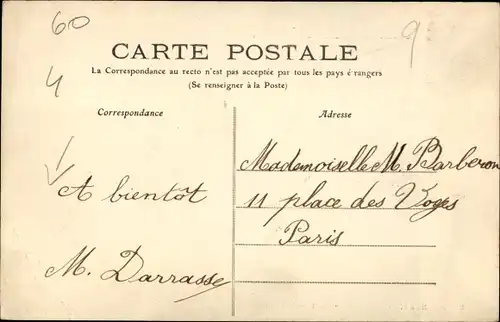 60
9
4
CARTE POSTALE
La Correspondance au recto n'est pas acceptée par tous les pays étrangers
(Se renseigner à la Poste)
Correspondance
Adresse
A bientôt
M. Darrasse
Mademoiselle M. Barberon
11 place des Voges
Paris